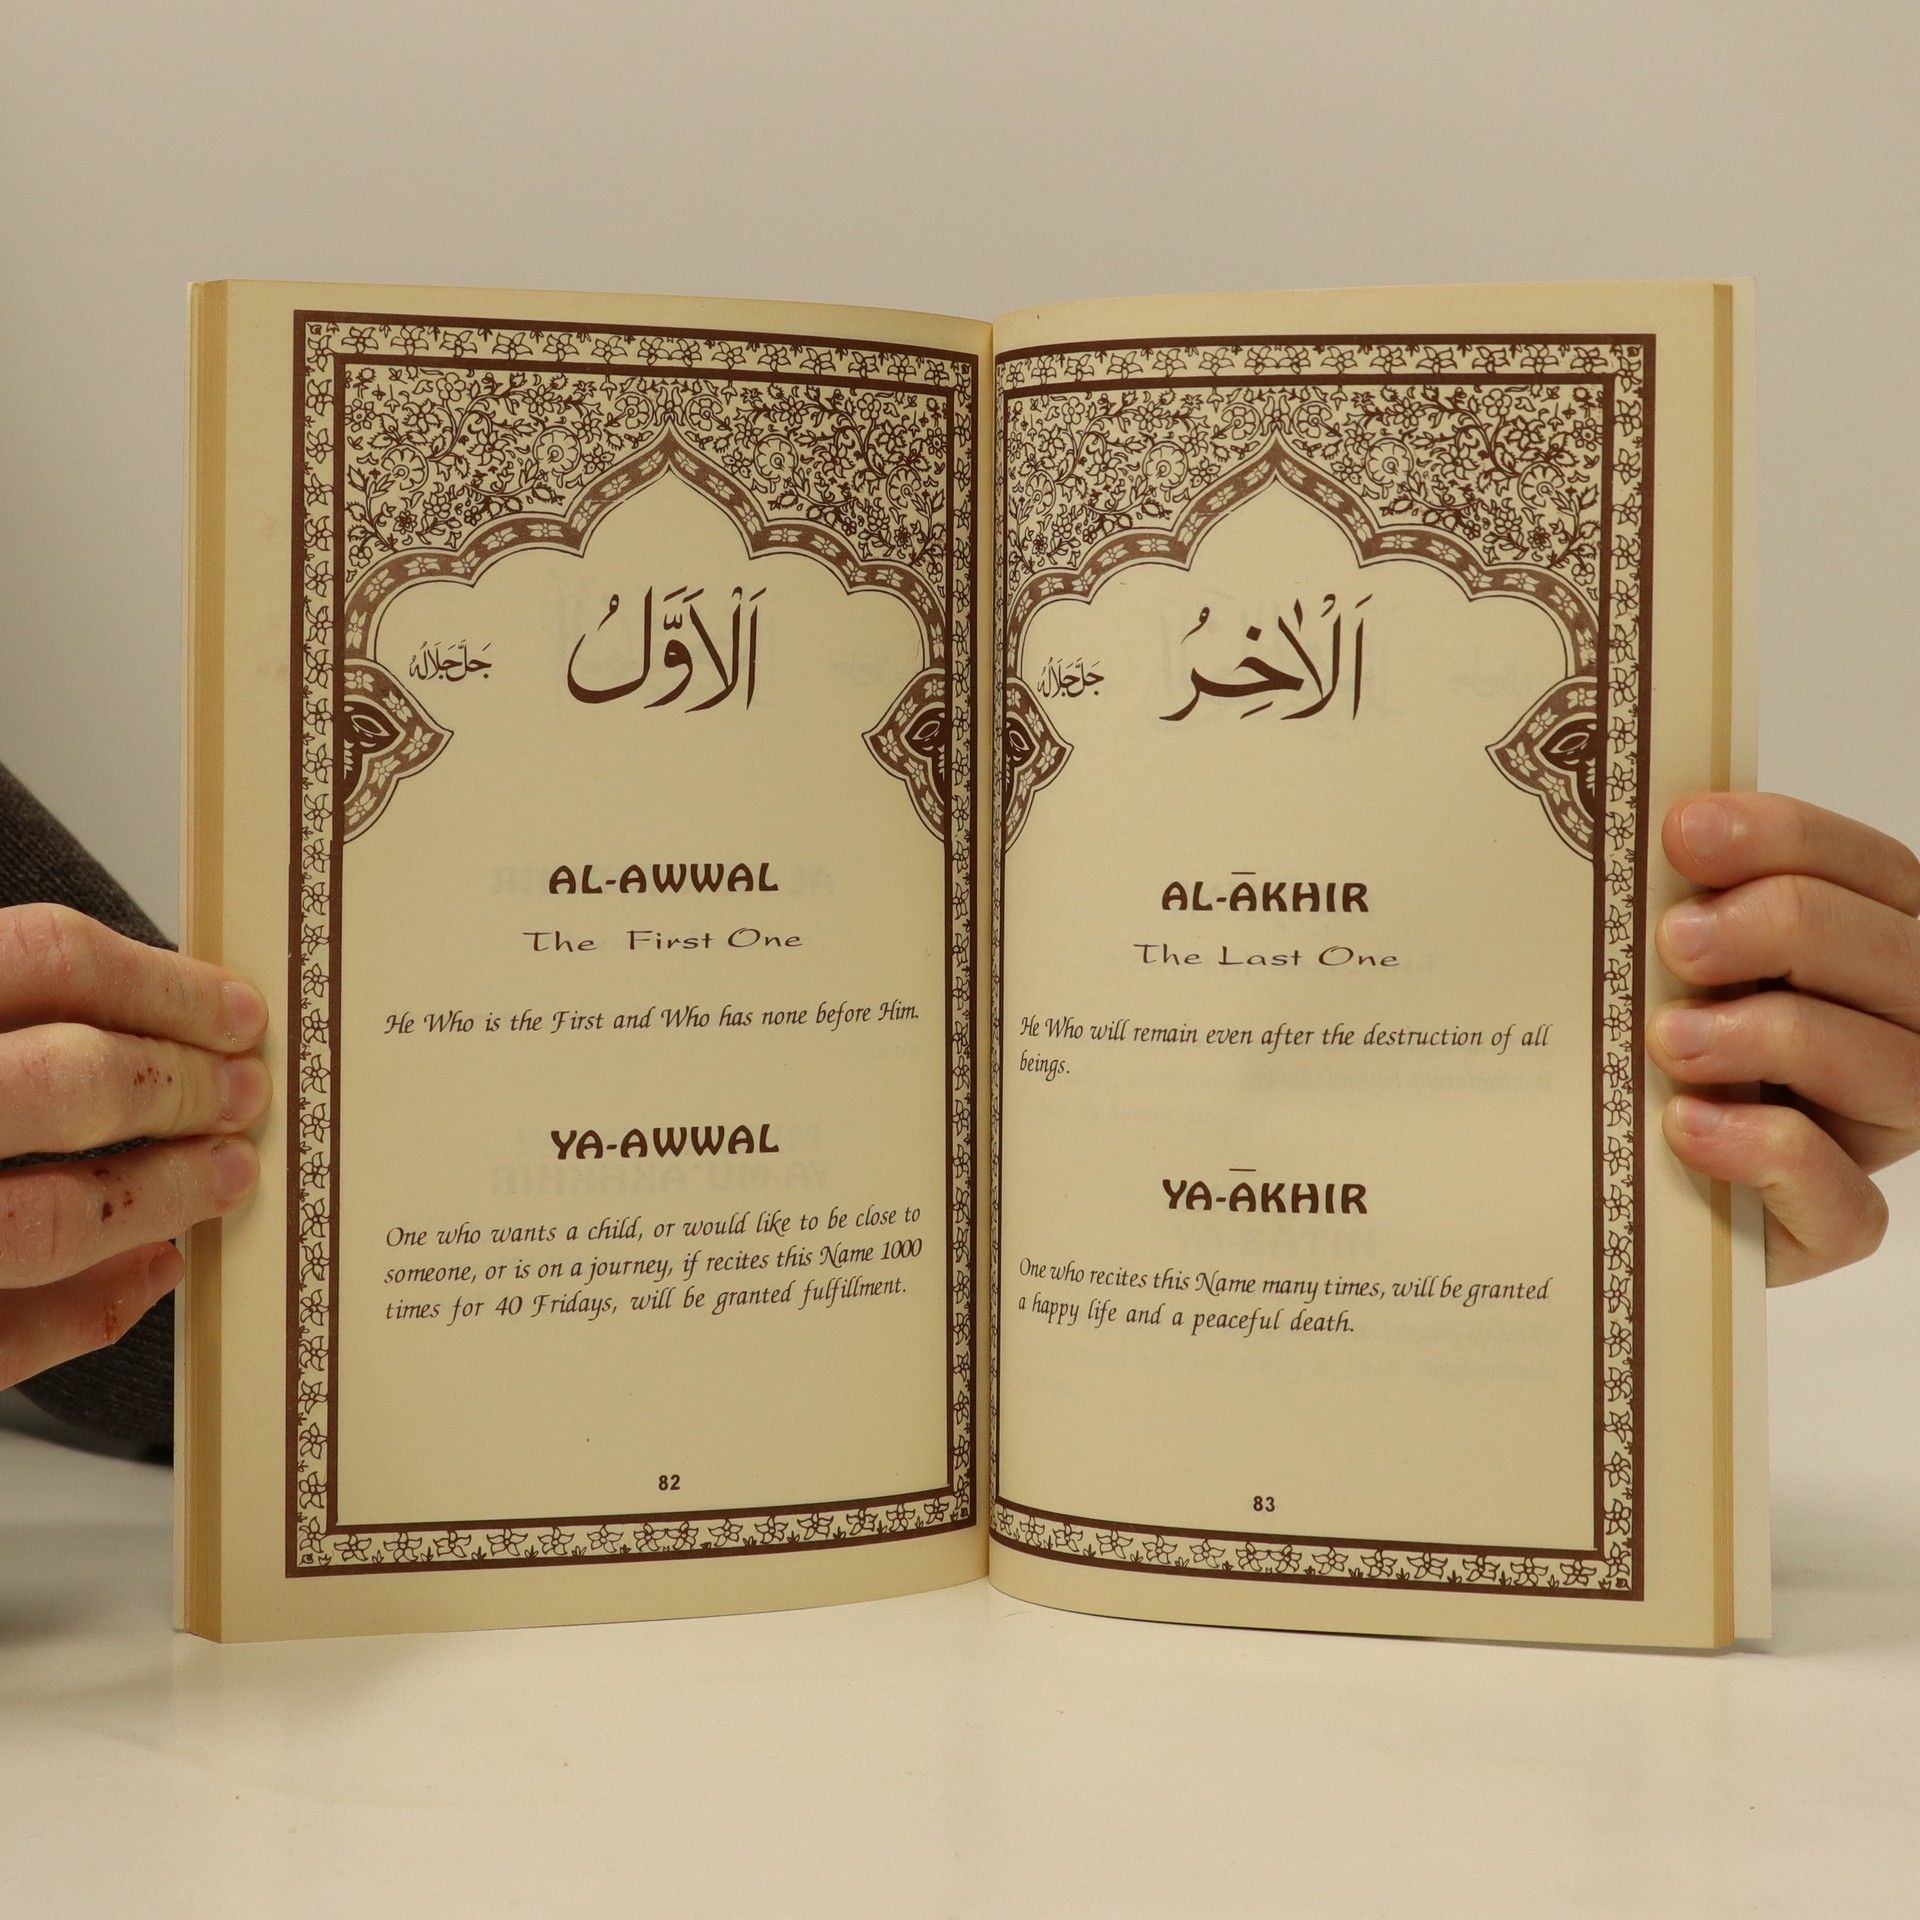 اَلْاَوَّلُ
جَلَّ جَلَالُهُ
AL-AWWAL
The First One
He Who is the First and Who has none before Him.
YA-AWWAL
One who wants a child, or would like to be close to
someone, or is on a journey, if recites this Name 1000
times for 40 Fridays, will be granted fulfillment.
82
اَلْاٰخِرُ
جَلَّ جَلَالُهُ
AL-ĀKHIR
The Last One
He Who will remain even after the destruction of all
beings.
YA-ĀKHIR
One who recites this Name many times, will be granted
a happy life and a peaceful death.
83